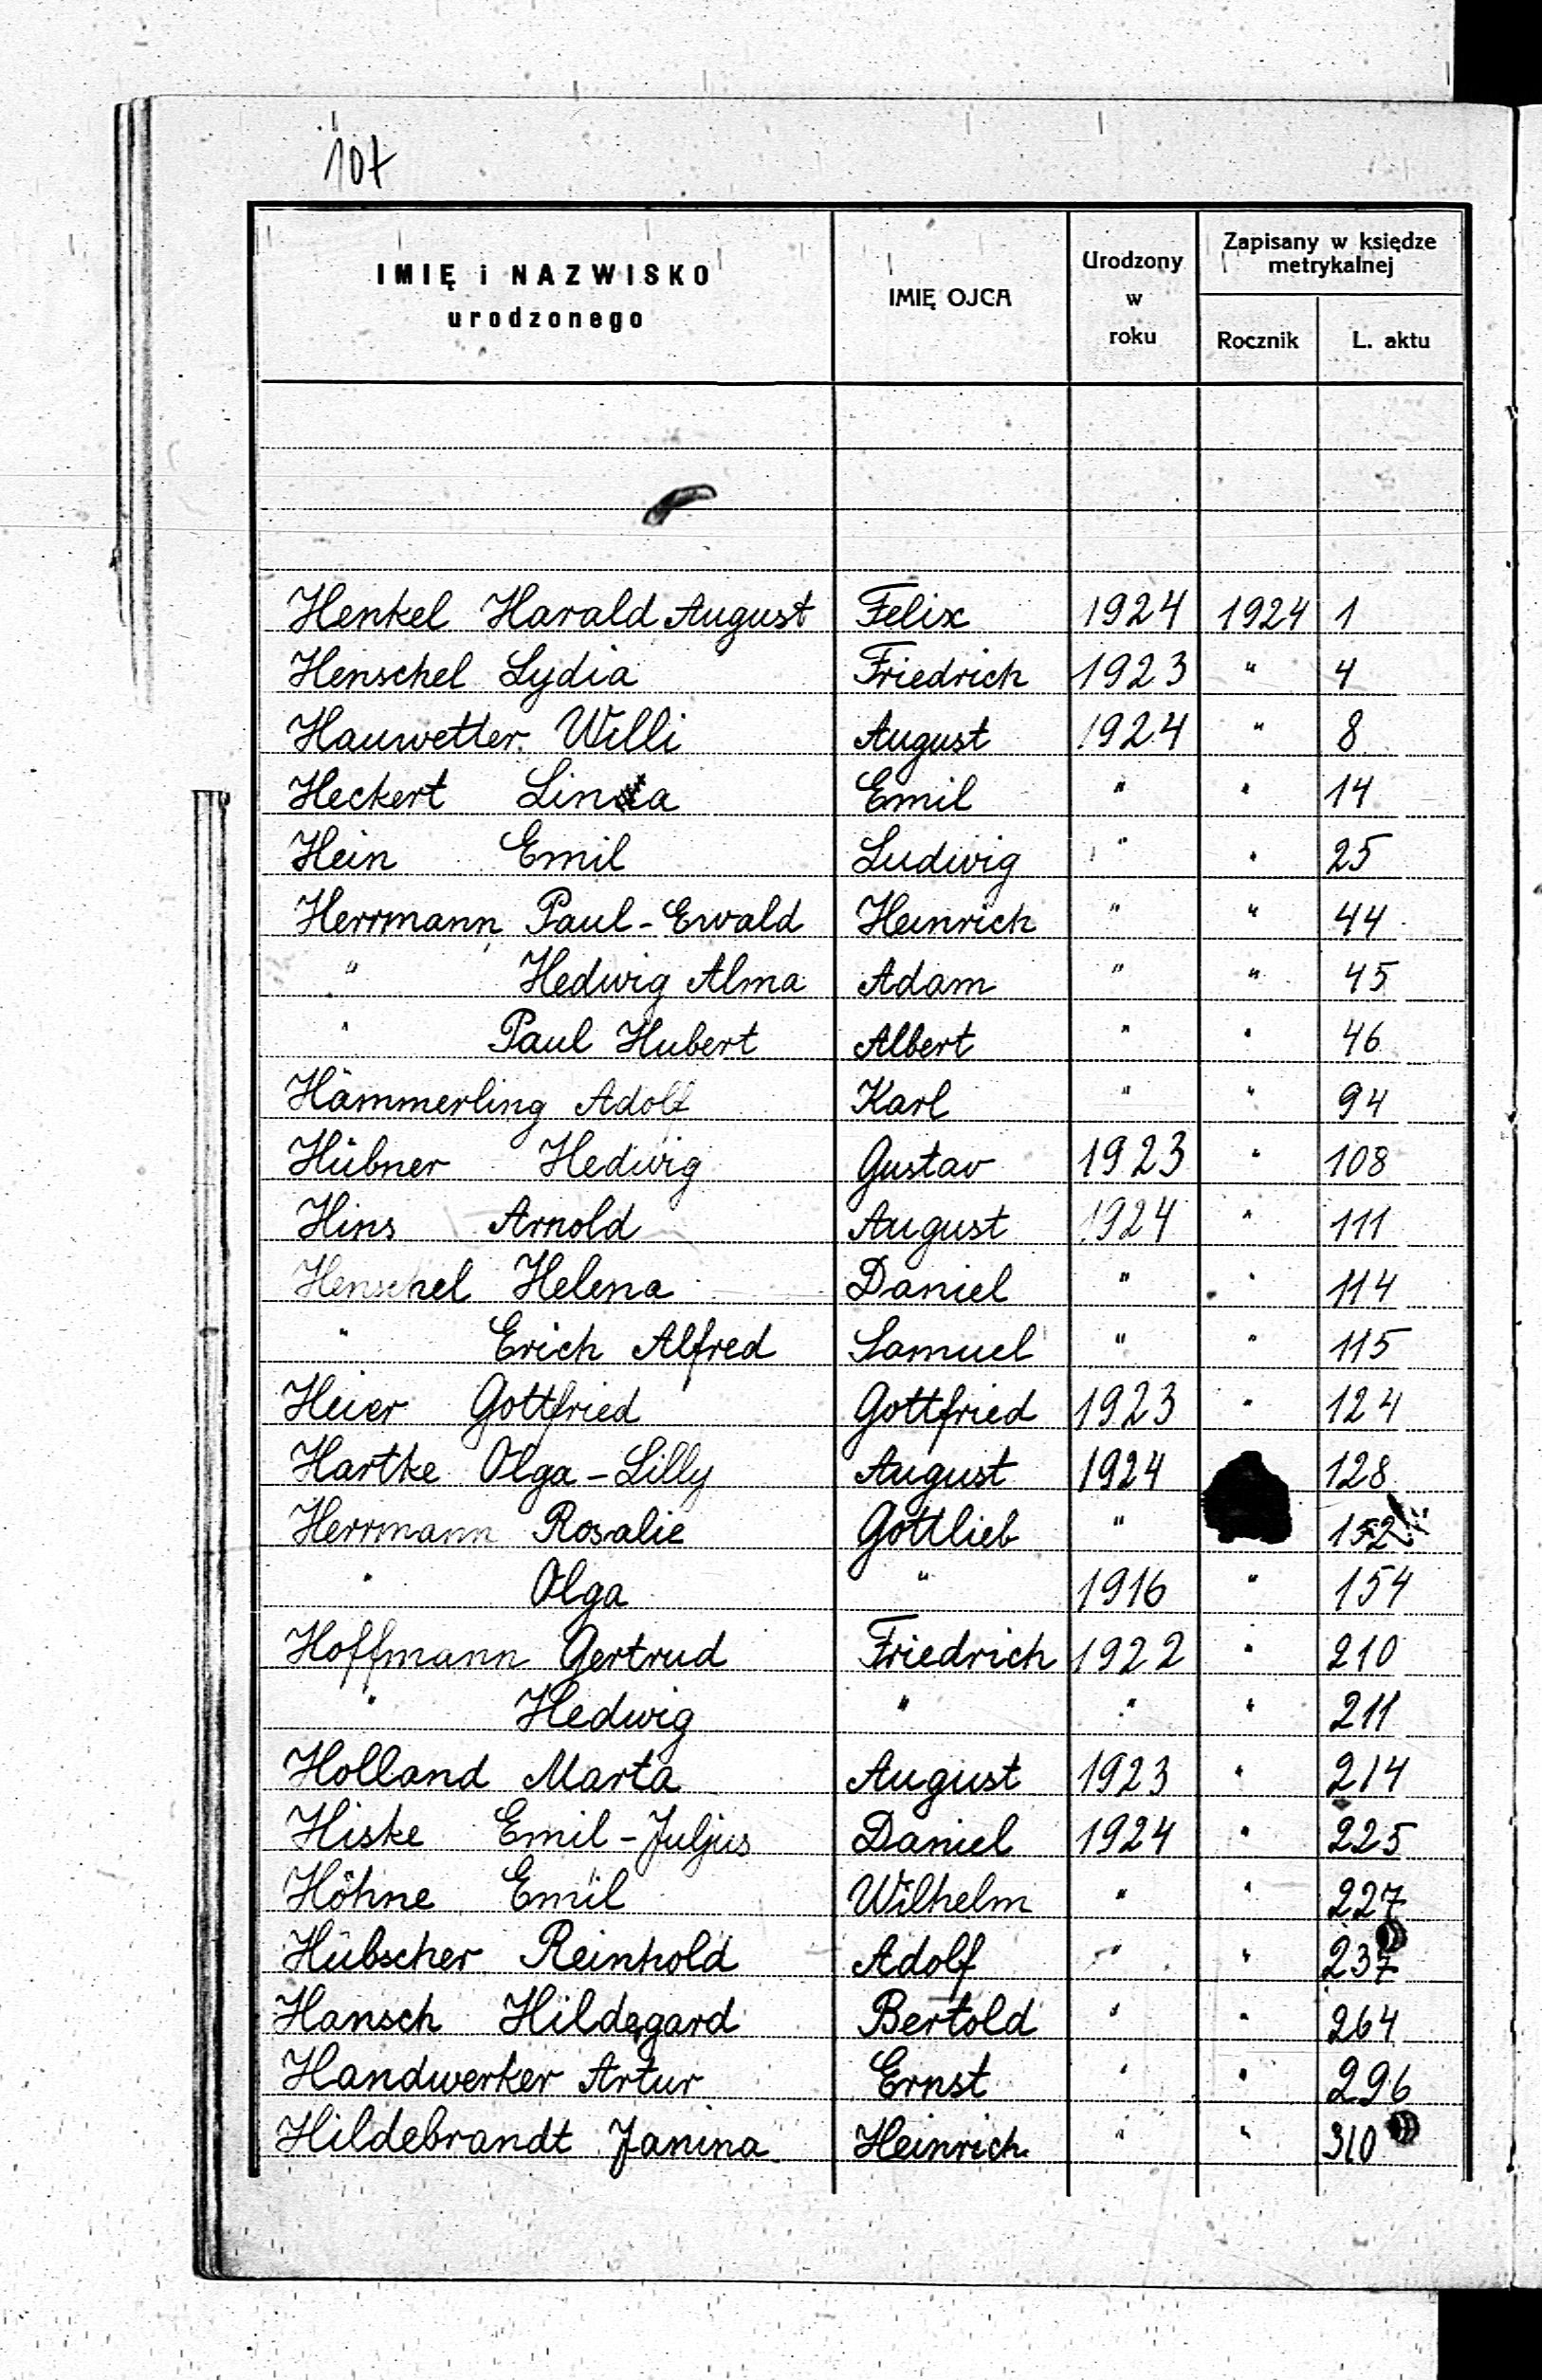 107
IMIĘ i NAZWISKO urodzonego | IMIĘ OJCA | Urodzony w roku | Zapisany w księdze metrykalnej
Rocznik | L. aktu
Henkel Harald August | Felix | 1924 | 1924 | 1
Henschel Lydia | Friedrich | 1923 | " | 4
Hauwetter Willi | August | 1924 | " | 8
Heckert Linda | Emil | " | " | 14
Hein Emil | Ludwig | " | " | 25
Herrmann Paul-Ewald | Heinrich | " | " | 44
" Hedwig Alma | Adam | " | " | 45
" Paul Hubert | Albert | " | " | 46
Hämmerling Adolf | Karl | " | " | 94
Hübner Hedwig | Gustav | 1923 | " | 108
Hins Arnold | August | 1924 | " | 111
Henschel Helena | Daniel | " | " | 114
" Erich Alfred | Samuel | " | " | 115
Heier Gottfried | Gottfried | 1923 | " | 124
Hartke Olga-Lilly | August | 1924 | 128
Herrmann Rosalie | Gottlieb | " | 152
" Olga | " | 1916 | " | 154
Hoffmann Gertrud | Friedrich | 1922 | " | 210
" Hedwig | " | " | " | 211
Holland Marta | August | 1923 | " | 214
Hiske Emil-Juljus | Daniel | 1924 | " | 225
Höhne Emil | Wilhelm | " | " | 227
Hübscher Reinhold | Adolf | " | " | 237
Hansch Hildegard | Bertold | " | " | 264
Handwerker Artur | Ernst | " | " | 296
Hildebrandt Janina | Heinrich | " | " | 310